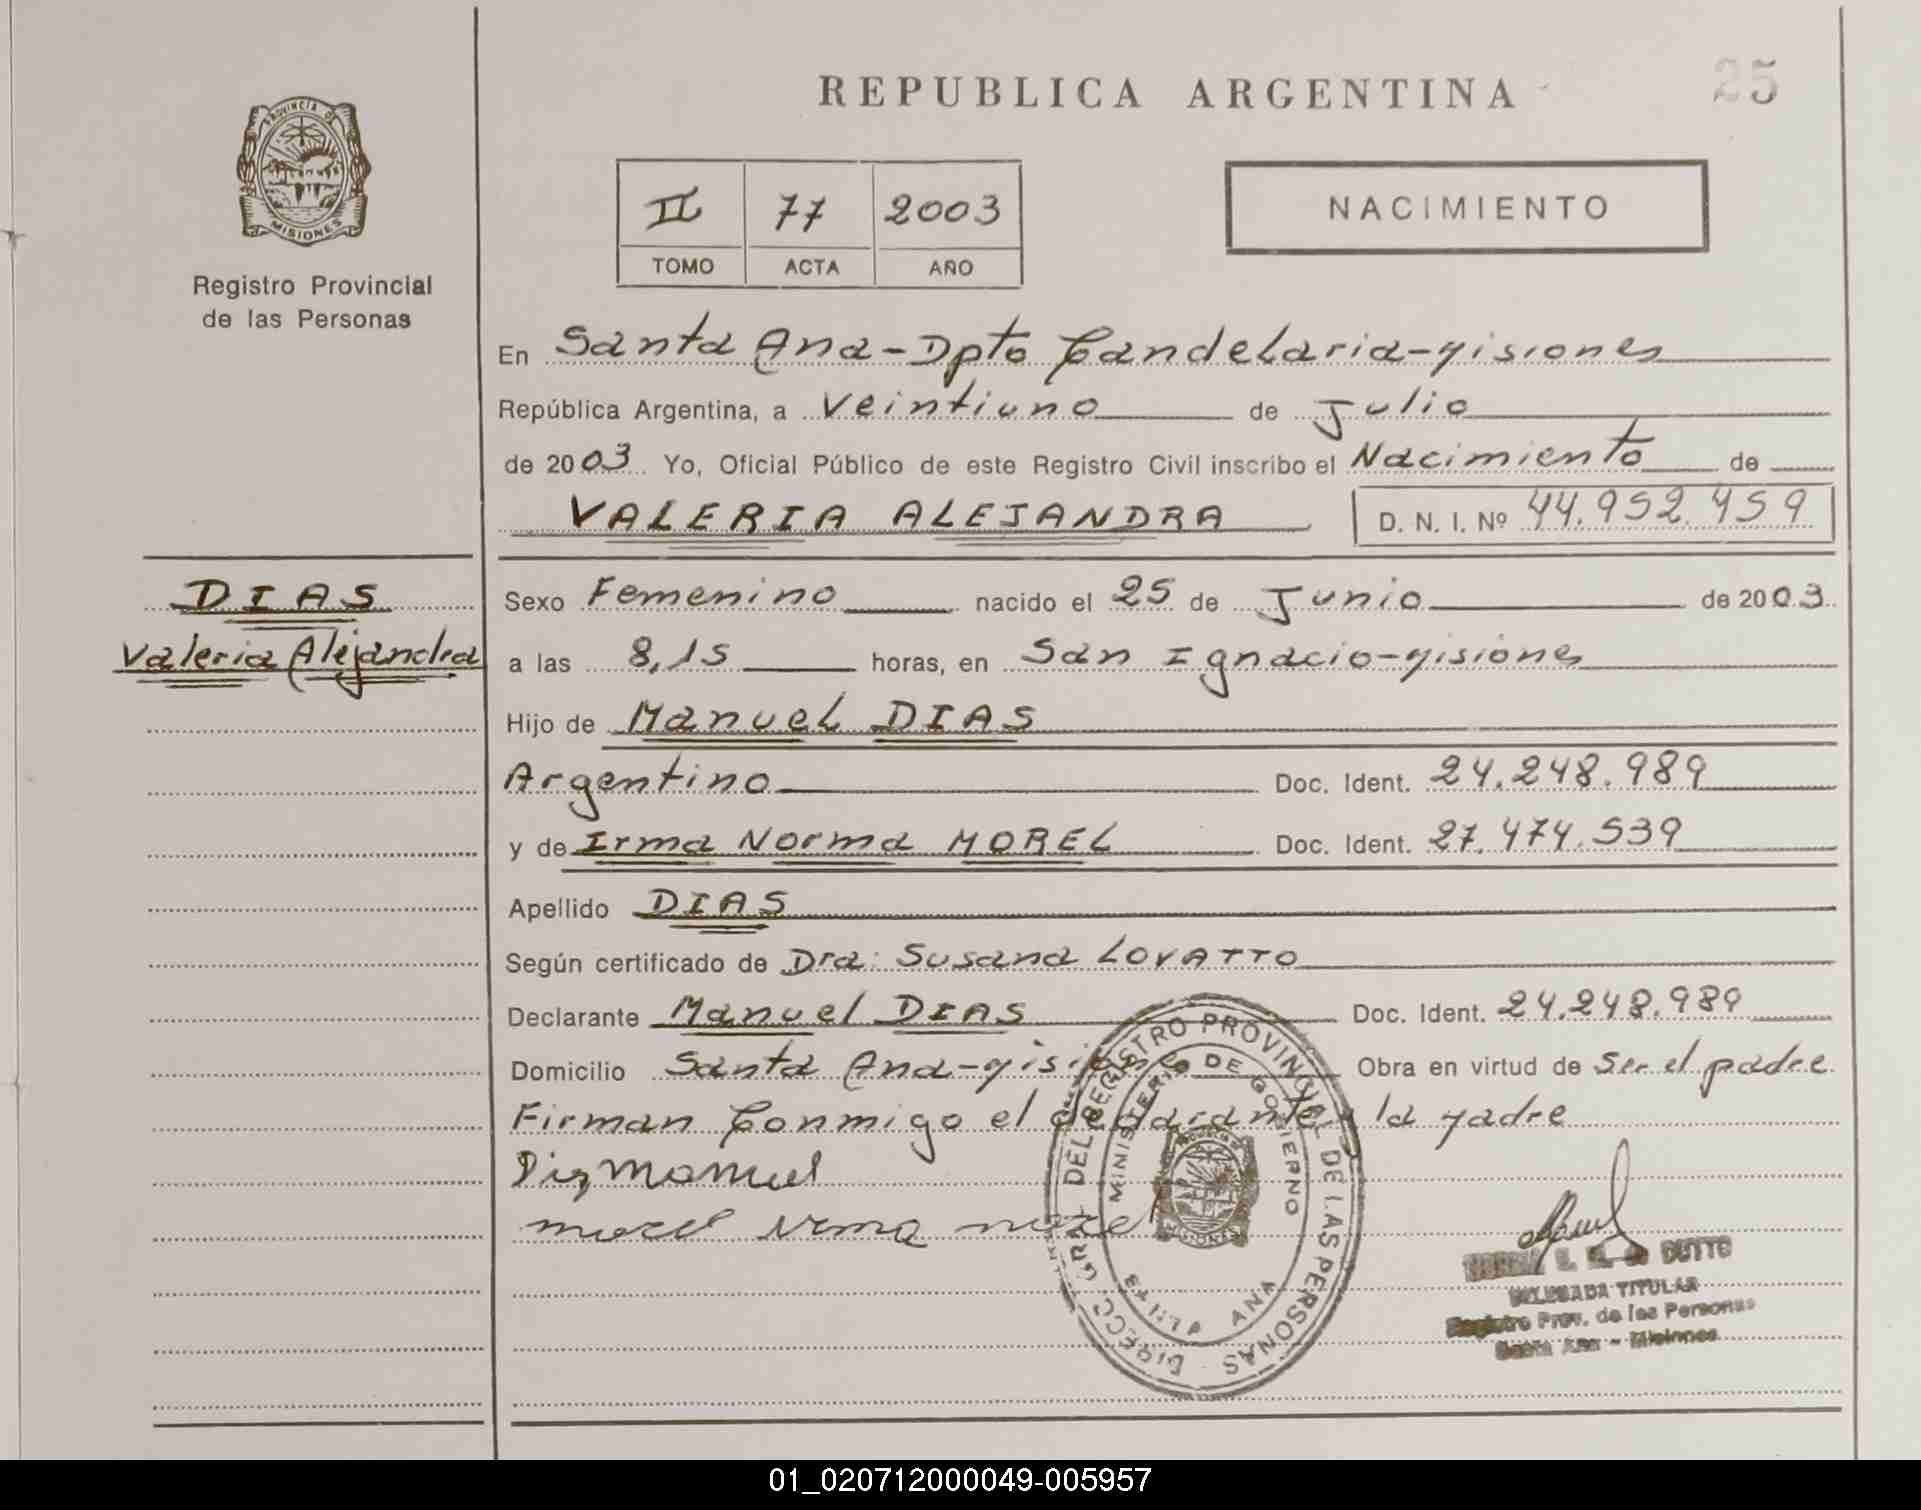 REPUBLICA ARGENTINA
25
PROVINCIA DE
MISIONES
Registro Provincial
de las Personas
II 77 2003
TOMO ACTA AÑO
NACIMIENTO
En Santa Ana-Dpto Candelaria-Misiones
República Argentina, a Veintiuno de Julio
de 2003 Yo, Oficial Público de este Registro Civil inscribo el Nacimiento de
VALERIA ALEJANDRA D. N. I. Nº 44.952.459
DIAS
Valeria Alejandra
Sexo Femenino nacido el 25 de Junio de 2003
a las 8,15 horas, en San Ignacio-Misiones
Hijo de Manuel DIAS
Argentino Doc. Ident. 24.248.989
y de Irma Norma MOREL Doc. Ident. 27.474.539
Apellido DIAS
Según certificado de Dra: Susana LOVATTO
Declarante Manuel DIAS Doc. Ident. 24.248.989
Domicilio Santa Ana-Misiones Obra en virtud de Ser el padre
Firman Conmigo el declarante y la Madre
Manuel
morel irma
DIRECC. GRAL. DEL REGISTRO PROVINCIAL DE LAS PERSONAS
MINISTERIO DE GOBIERNO
SANTA ANA
DUTTO
DELEGADA TITULAR
Registro Prov. de las Personas
Santa Ana - Misiones
01_020712000049-005957